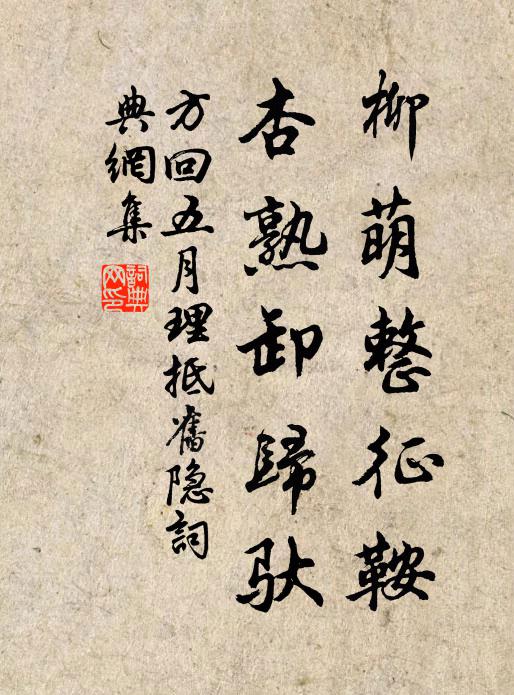 柳萌整征鞍
杏熟卸歸馱
方回五月理抵舊隐詞
典網集
詞典網印